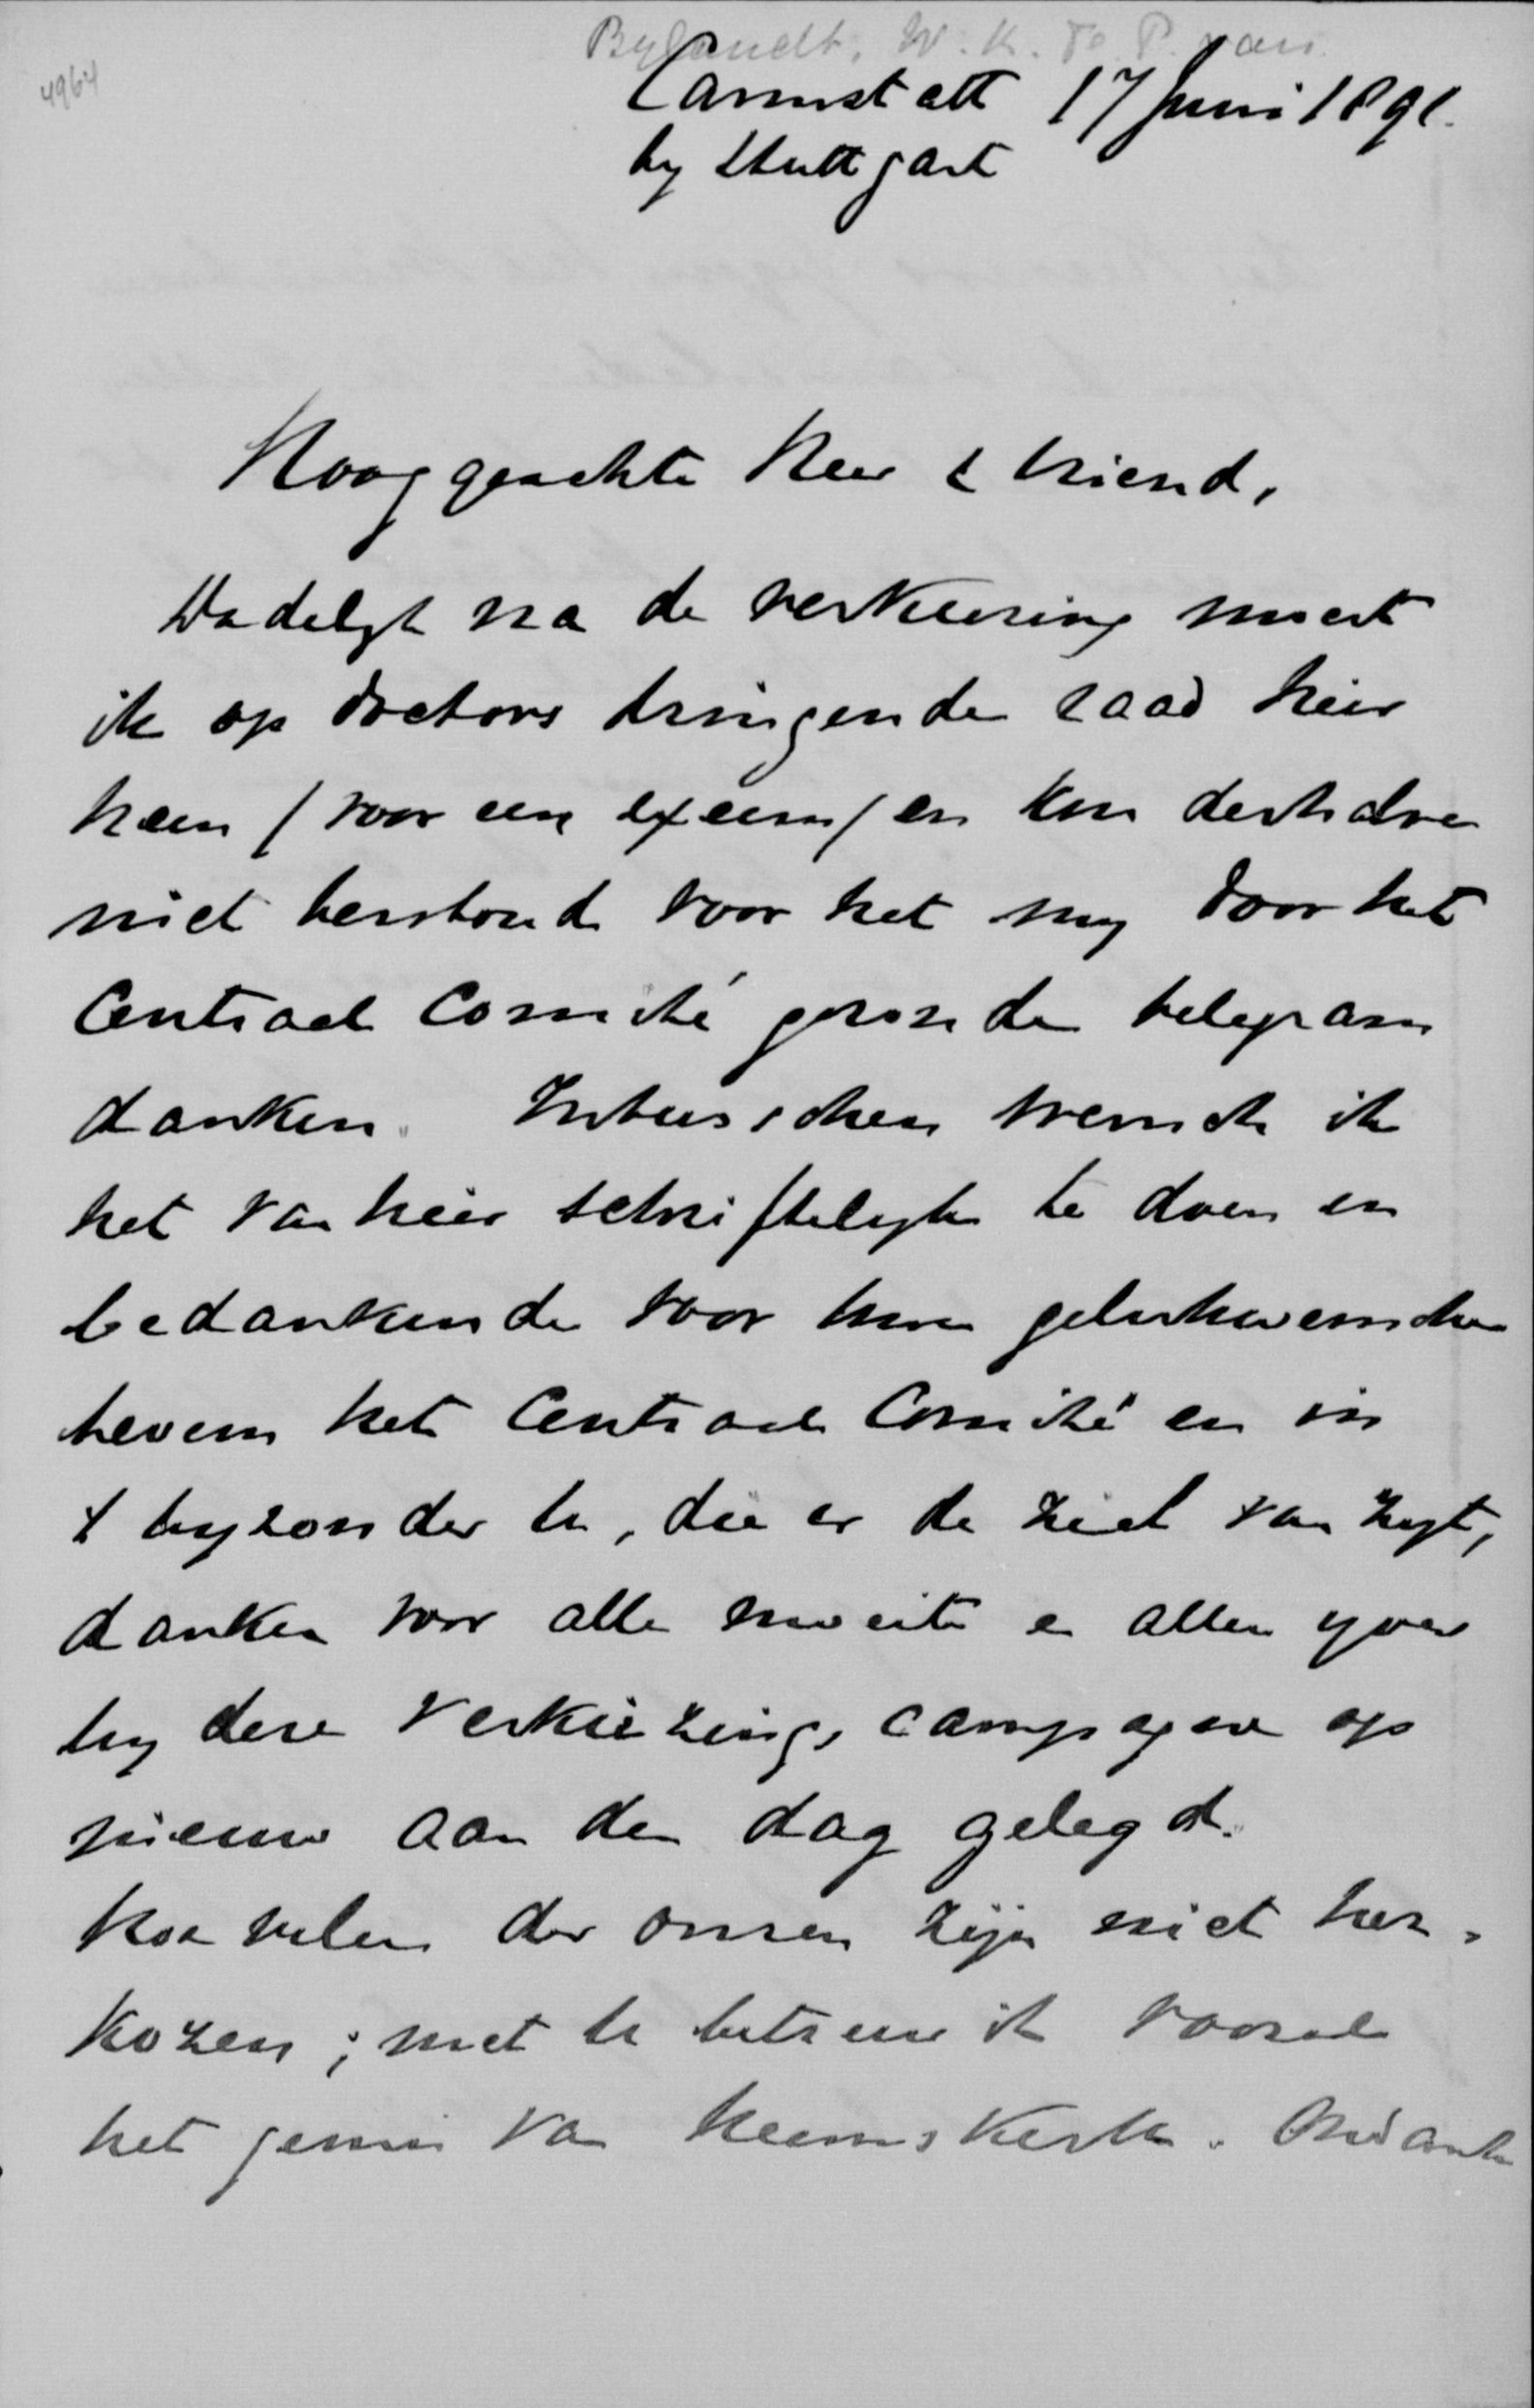 4964
Bylandt, W. K. F. P. van
Cannstatt 17 Juni 1891.
by Stuttgart
Hooggeachte Heer & Vriend,
Dadelyk na de verkiezing moest
ik op doctors dringenden raad hier
heen / voor een exeem / en kon derhalve
niet terstond voor het my door het
Centraal Comité gezonden telegram
danken. Intusschen wensch ik
het van hier schriftelyk te doen en
bedankende voor hun gelukwenschen
tevens het Centraal Comité en in
't byzonder U, die er de ziel van zyt,
danken voor alle moeite en allen yver
by deze verkiezings campagne op
nieuw aan den dag gelegd.
Hoe velen der onzen zijn niet her-
kozen; met U betreur ik vooral
het gemis van Heemskerk. Ondanks